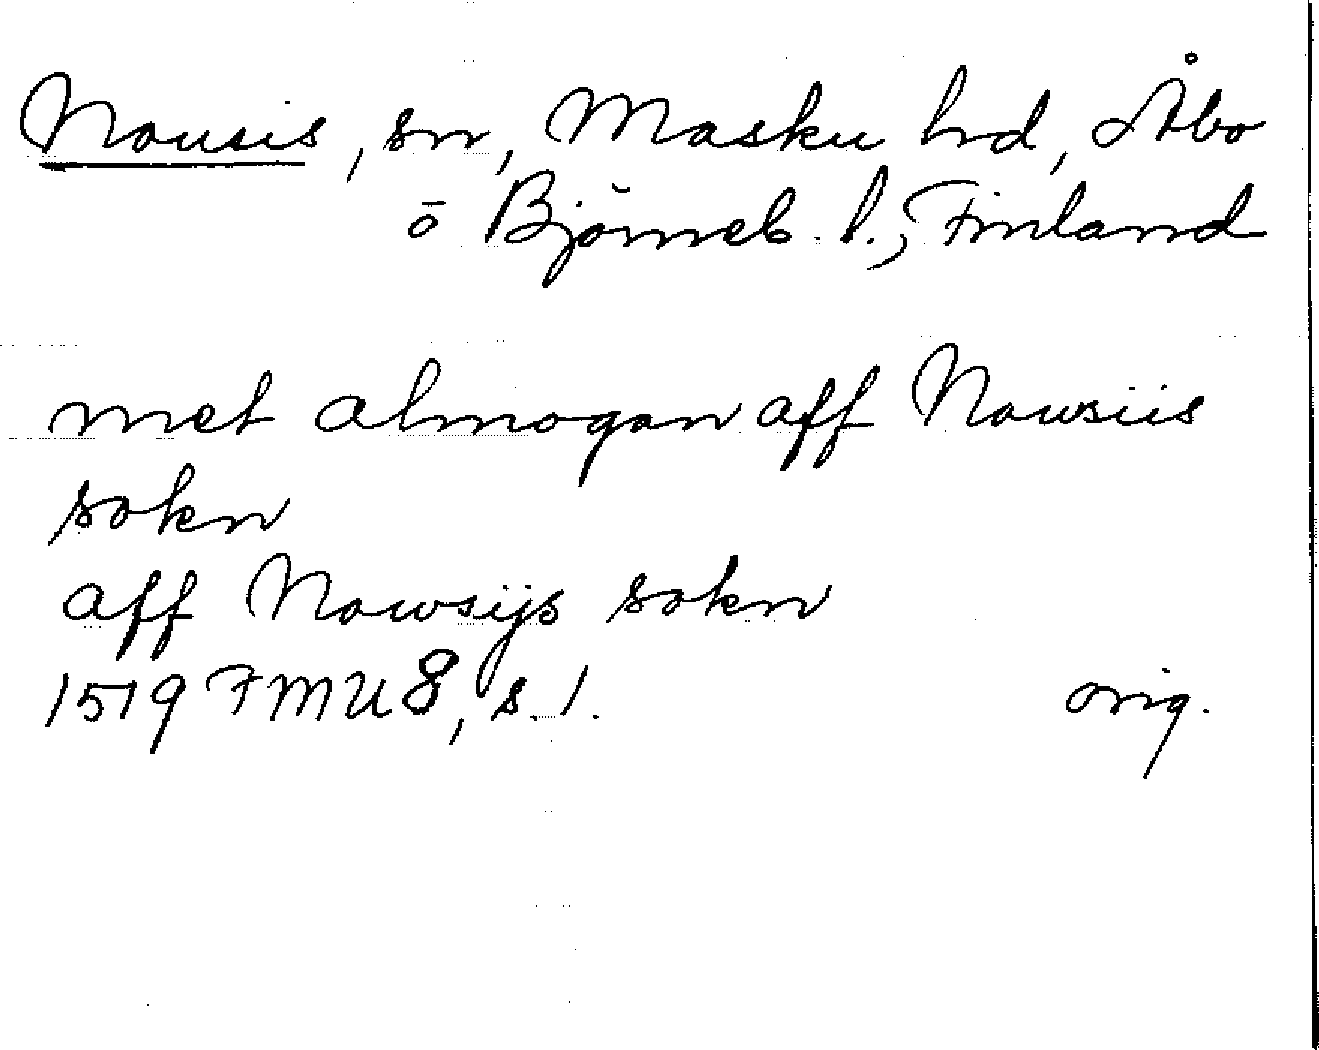 Nousis, sn, Masku hd, Åbo
o Björneb. l., Finland
met almogan aff Nowsiis
sokn
aff Nowsijs sokn
1519 FMU 8, s. 1. orig.